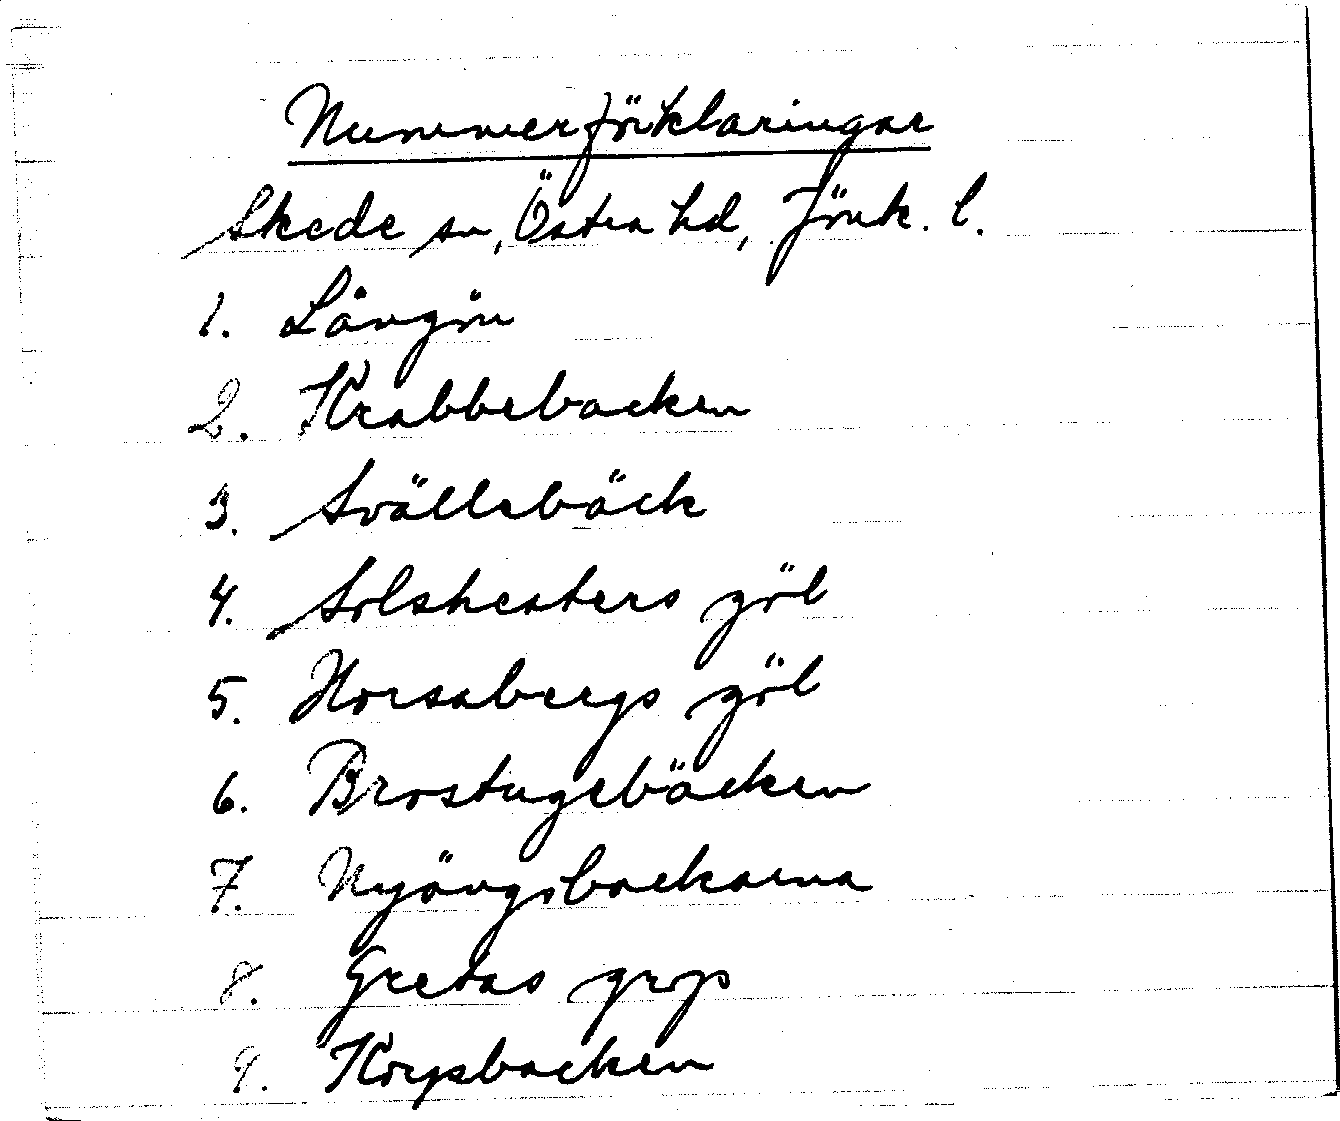 Nummerförklaringar
Skede sn, Östra hd, Jönk. l.
1. Långön
2. Krabbebacken
3. Svällebäck
4. Solsheaters göl
5. Horsabergs göl
6. Brostugebäcken
7. Nyängsbackarna
8. Gretas grop
9. Korpbacken